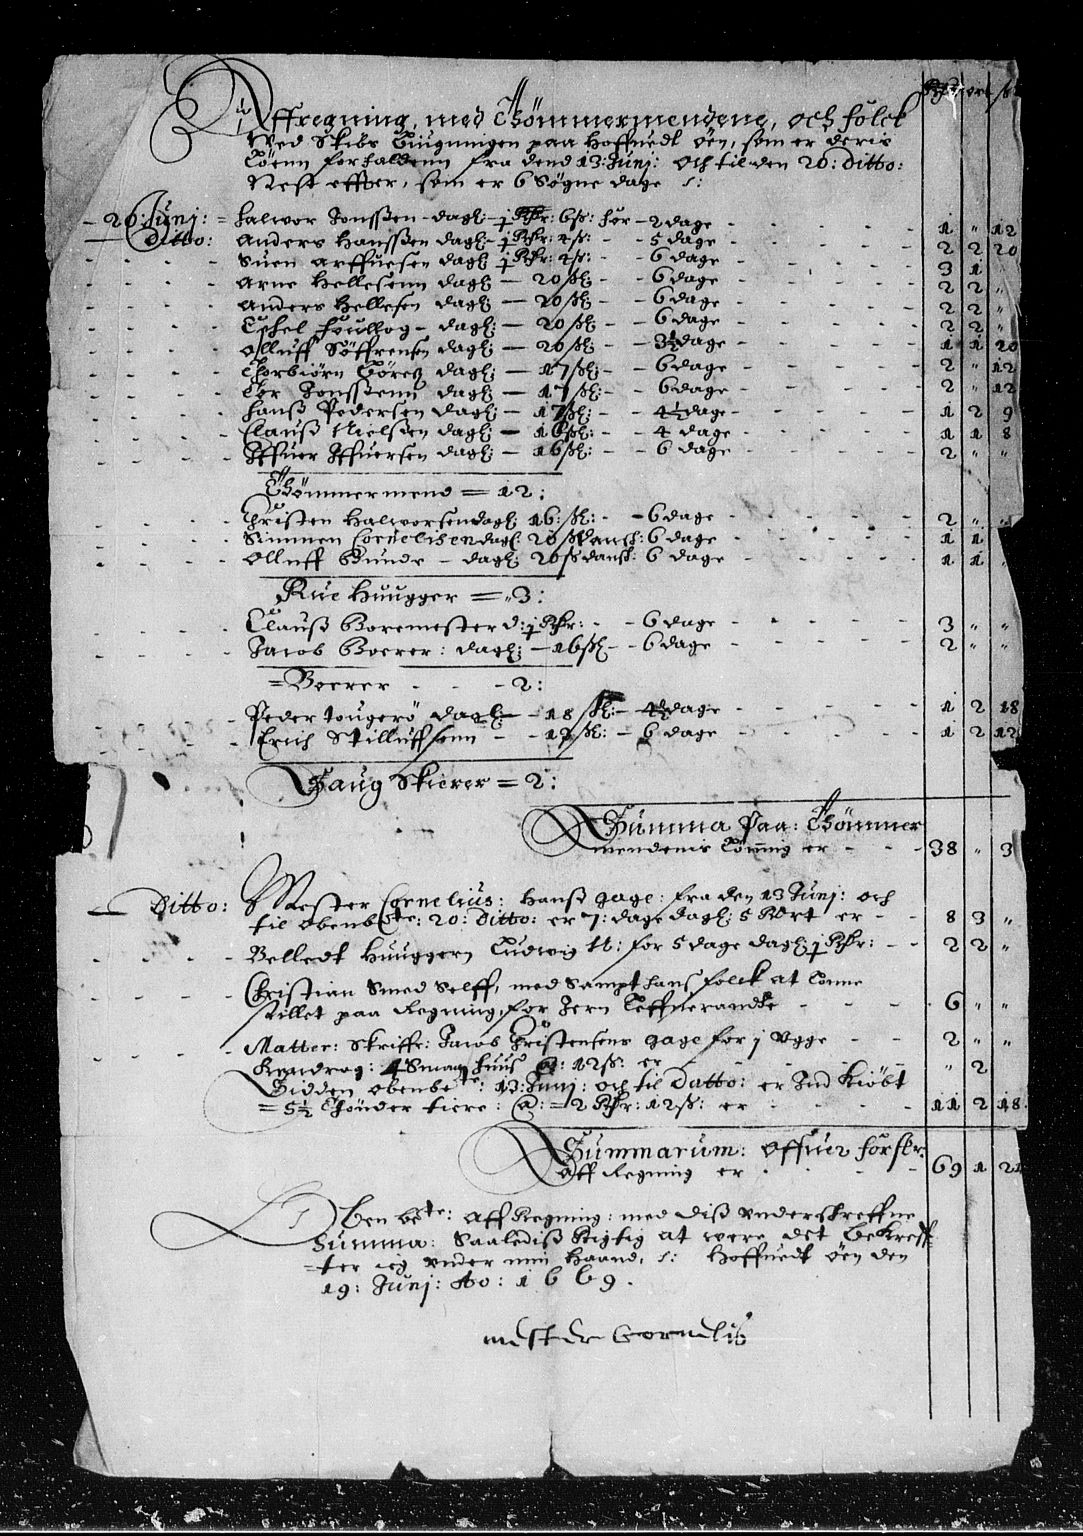 Rdr ort ß
Affregning, med Tömmermendene, och folck
Wed Skibs Bÿugningen paa Hoffuedt øen, som er deris
Lönn forfaldenn fra dend 13 Junj: och til den 20: Ditto:
Nest effter, som er 6 Søgne dage
- 20: Junj: = Halvor Jonssøen - dagl: - j Rdr: 6 ß: för - 2 dage - 1 " 12
Ditto: Anders Hanssøen dagl: - j Rdr: 4 ß: - 5 dage - 2 2 20
Suen Arffuesen dagl: j Rdr: 4 ß: - 6 dage - 3 1 "
Arne Hellesenn dagl: - 20 ßl: - 6 dage - 2 2 "
Anders Hellesen dagl: - 20 ßl: - 6 dage - 2 2 "
- dagl: - 20 ßl: - 6 dage - 2 2 "
Olluff Söffrensen dagl: - 20 ßl: - 3½ dage - 1 1 20
Torbiörn dagl: - 17 ßl: - 6 dage - 2 " 12
Tor Jonssenn dagl: - 17 ßl: - 6 dage - 2 " 12
Hanß Pedersen dagl: - 17 ßl: - 4½ dage - 1 2 9
Clauß Nielsen dagl: - 16 ßl: - 4 dage - 1 1 8
Iffuer Iffuersen dagl: - 16 ßl: - 6 dage - 2 " "
Tömmermend = 12:
Christen Halvorsen dagl: 16: ßl: - 6 dage - 2 " "
Simmen Cornelisen dagl: 20 ß dansk: 6 dage - 1 1 "
Olluff Bunde - dagl: 20 ß dansk: 6 dage - 1 1 "
Rue Huugger = 3:
Clauß Boremester d: j Rdr: - 6 dage - 3 " "
Jacob Boerer: dagl: - 16 ßl: - 6 dage - 2 " "
= Boerer - - - 2:
Peder dagl: - 18 ßl: - 4½ dage - 1 2 18
Erich - 17 ßl: - 6 dage - 1 2 12
Saug Skierer = 2:
Summa Paa: Tömmer
mendenis Lönning er - - - 38 " 3
Ditto: Mester Cornelius: Hanß gage: fra den 13 Junj: och
til obenbete: 20: Ditto: er 7: dage dagl: 5 Ort er - - 8 3 "
Belledt Huuggern Ludwig for 5 dage dagl: j Rdr: - - 2 2 "
Christian Smed Selff, med Sampt Hans folck at Lönne
stillet paa Regning, for Jern Leffuerandtz - - - 6 " "
Matter: Skriffr: Jacob Christensens gage for j Ugge - - 2 " "
4 Smaa huus a: 12 ß: er - - - " 2
Sidden obenbete: 13: Junj: och til Datto: er Ind Kiöbt
= 5½ Tönder tiere: @: = 2 Rdr: 12 ß: er - - - 11 2 18
Summarum: offuer forskr:
aff Regning er - - - 69 1 21
Oben bete: aff Regning: med diß underskreffne
Summa: Saalediß Rigtig at were det bekreff
=ter ieg under min Haand, Hoffuedt øen den
19: Junj: Ao: 1669.
mester Cornelis